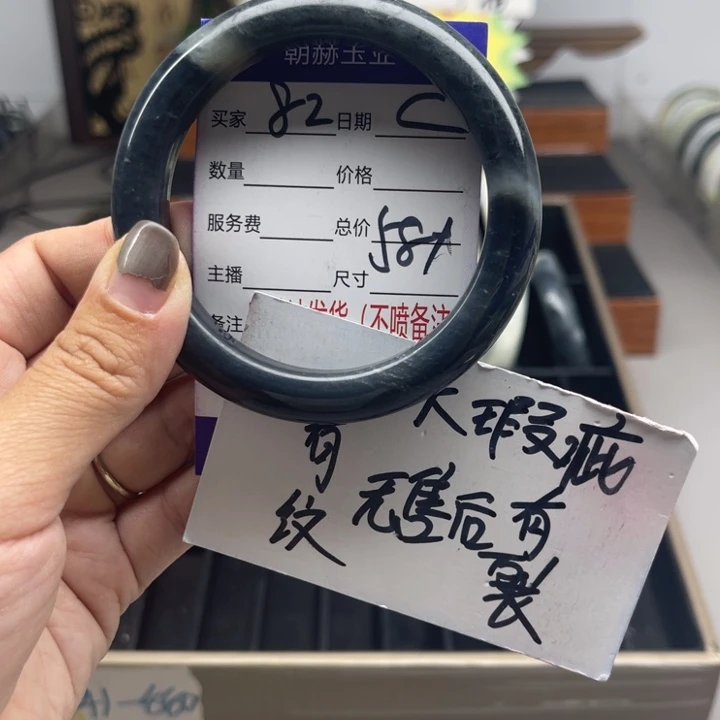 朝赫玉业
买家 82 日期 C
数量 价格
服务费 总价 581
主播 尺寸
备注 发货（不喷备注
大瑕疵
有 无售后有
纹 裂